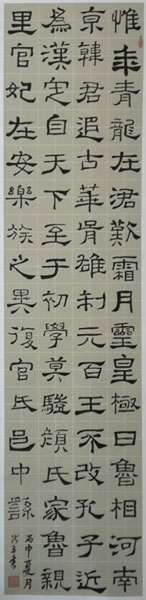 惟年青龍在涒歎霜月靈皇極日魯相河南
京韓君追古華胥雄制元百王不改孔子近
為漢定自天下至于初學莫駥顏氏家魯親
里官妃在安樂族之異復官氏邑中繇
丙申夏月
書